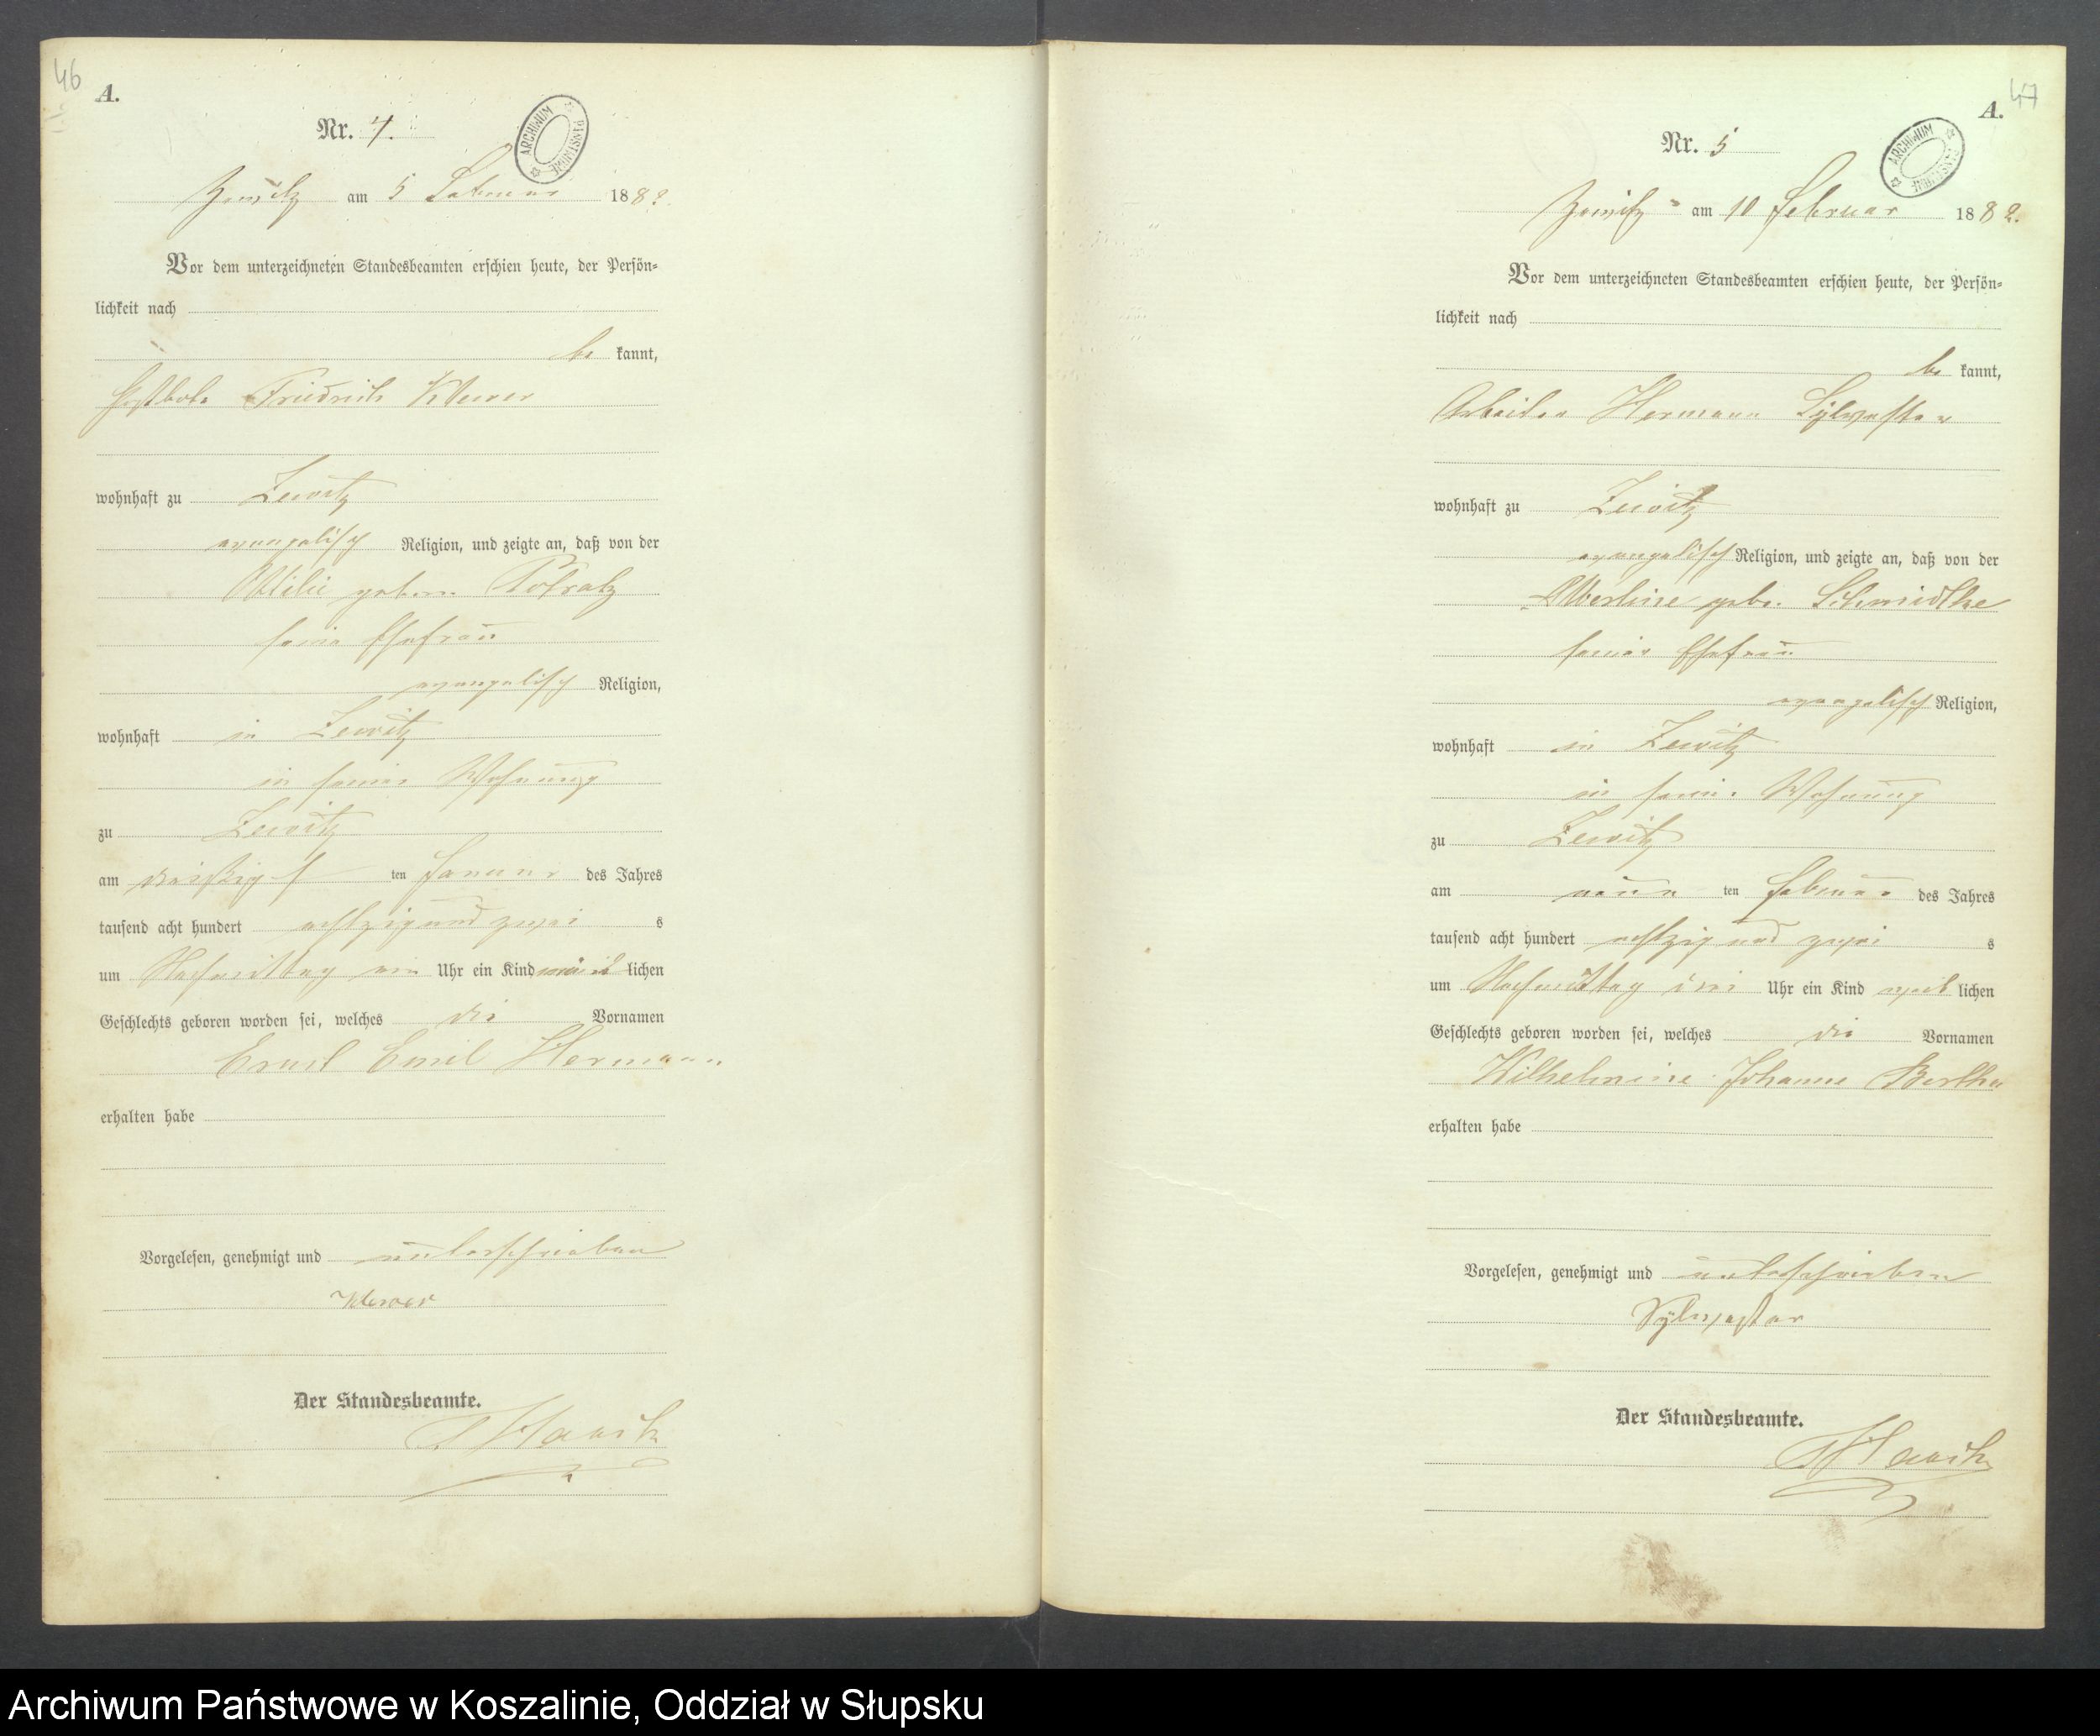 46
A.
Nr. 4.
ARCHIWUM PAŃSTWOWE
am 5 Februar 1882
Vor dem unterzeichneten Standesbeamten erschien heute, der Persön-
lichkeit nach
be kannt,
Friedrich Klewer
wohnhaft zu Zewitz
evangelisch Religion, und zeigte an, daß von der
Ottilie geboren Potratz
seine Ehefrau
evangelisch Religion,
wohnhaft in Zewitz
in seiner Wohnung
zu Zewitz
am dreißigs ten Januar des Jahres
tausend acht hundert achtzig und zwei s
um Nachmittag ein Uhr ein Kind lichen
Geschlechts geboren worden sei, welches die Vornamen
Ernst Emil Hermann
erhalten habe
Vorgelesen, genehmigt und unterschrieben
Klewer
Der Standesbeamte.
47
A.
Nr. 5
ARCHIWUM PAŃSTWOWE
am 10 Februar 1882.
Vor dem unterzeichneten Standesbeamten erschien heute, der Persön-
lichkeit nach
be kannt,
Arbeiter Hermann Sylvester
wohnhaft zu Zewitz
evangelisch Religion, und zeigte an, daß von der
Albertine geb. Schmidtke
seiner Ehefrau
evangelisch Religion,
wohnhaft in Zewitz
in seiner Wohnung
zu Zewitz
am neun ten Februar des Jahres
tausend acht hundert achtzig und zwei s
um Nachmittag drei Uhr ein Kind weib lichen
Geschlechts geboren worden sei, welches die Vornamen
Wilhelmine Johanne Bertha
erhalten habe
Vorgelesen, genehmigt und unterschrieben
Sylvester
Der Standesbeamte.
Archiwum Państwowe w Koszalinie, Oddział w Słupsku